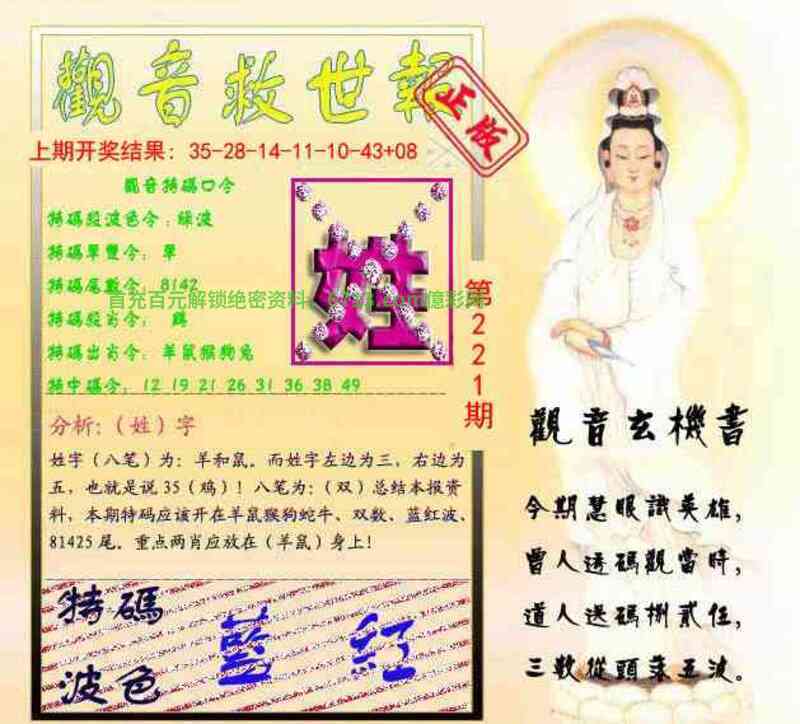 觀音救世報
正版
上期开奖结果：35-28-14-11-10-43+08
觀音特碼口令
特碼段波色令：綠波
特碼單雙令：單
特碼尾數令：8142
首充百元解锁绝密资料
億彩网
特碼殺肖令：鷄
特碼出肖令：羊鼠猴狗兔
特中碼令：12 19 21 26 31 36 38 49
姓
第221期
分析：（姓）字
姓字（八笔）为：羊和鼠。而姓字左边为三，右边为
五，也就是说35（鸡）！八笔为：（双）总结本报资
料，本期特码应该开在羊鼠猴狗蛇牛、双数、蓝红波、
81425尾。重点两肖应放在（羊鼠）身上！
特碼
波色
藍 紅
觀音玄機書
今期慧眼識英雄，
曾人透碼觀當時，
道人送碼捌貳伍，
三數從頭來五波。